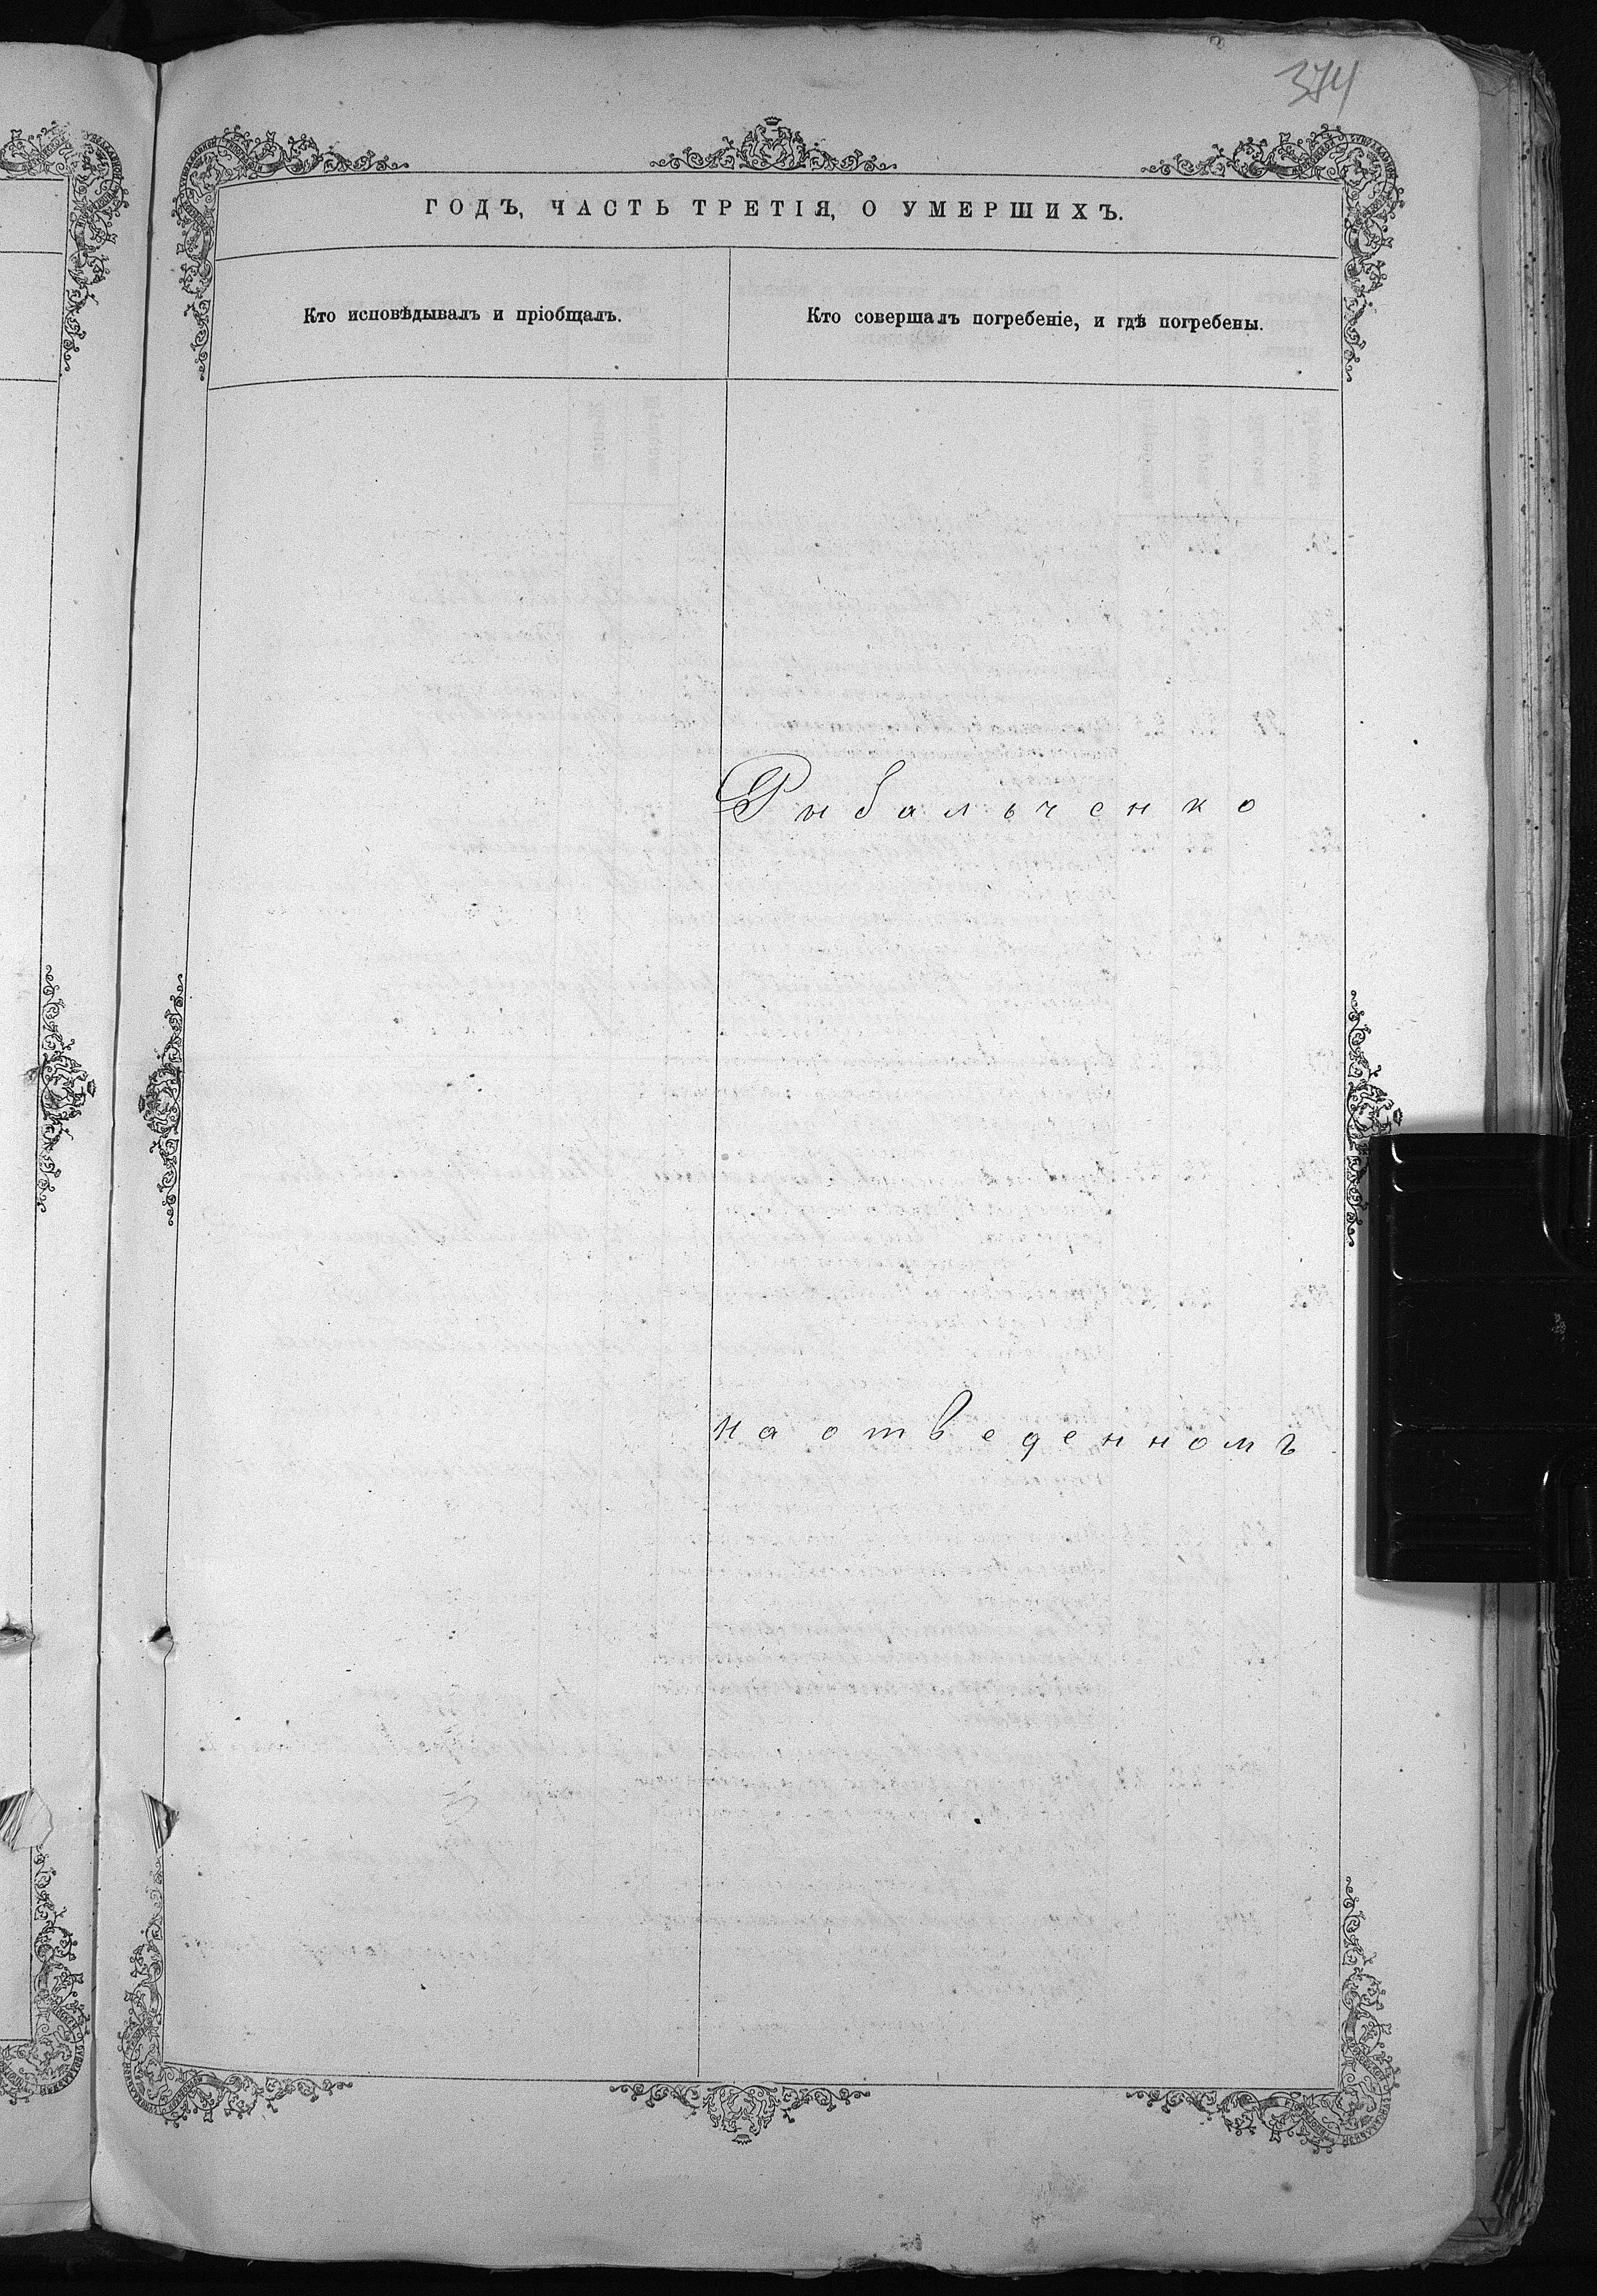 374
ГОДЪ, ЧАСТЬ ТРЕТІЯ, О УМЕРШИХЪ.
Кто исповѣдывалъ и пріобщалъ.
Кто совершалъ погребеніе, и гдѣ погребены.
Рыбальченко
на отведенномъ